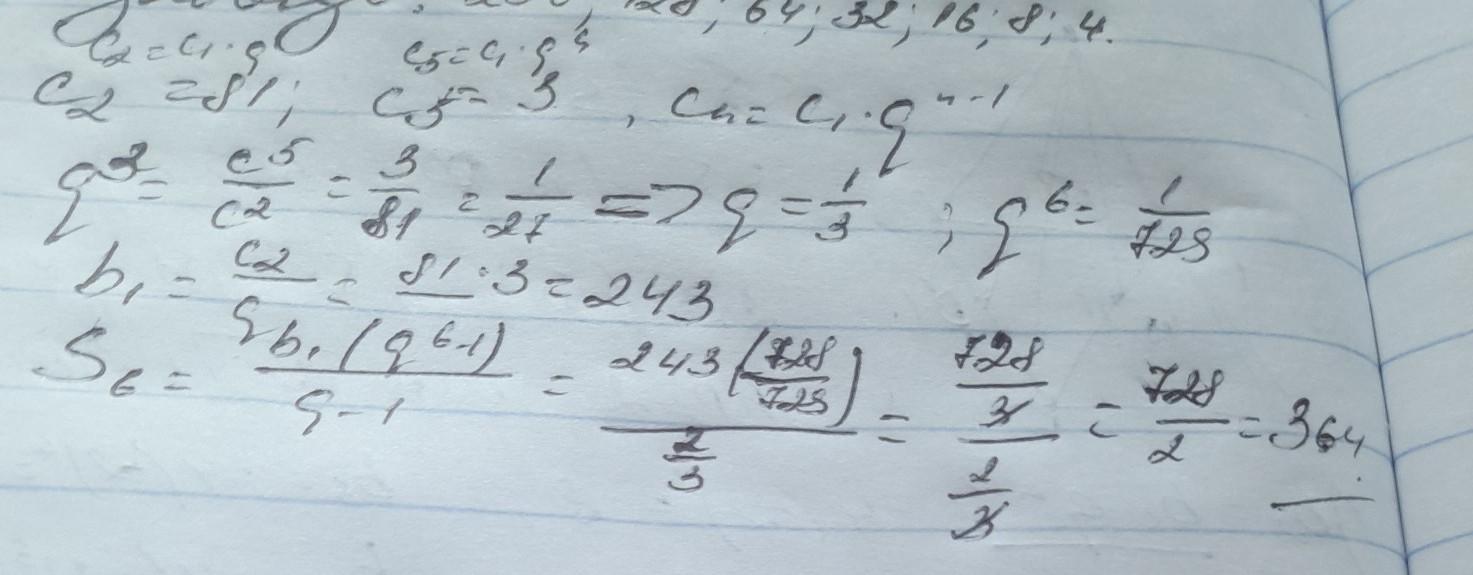 128; 64; 32; 16; 8; 4.
c₂ = c₁ · q c₅ = c₁ · q⁴
c₂ = 81; c₅ = 3, cₙ = c₁ · qⁿ⁻¹
q³ = c5/c2 = 3/81 = 1/27 => q = 1/3; q⁶ = 1/729
b₁ = c₂/q = 81 · 3 = 243
S₆ = b₁(q⁶-1)/q-1 = 243(728/729)/(2/3) = (728/3)/(2/3) = 728/2 = 364.